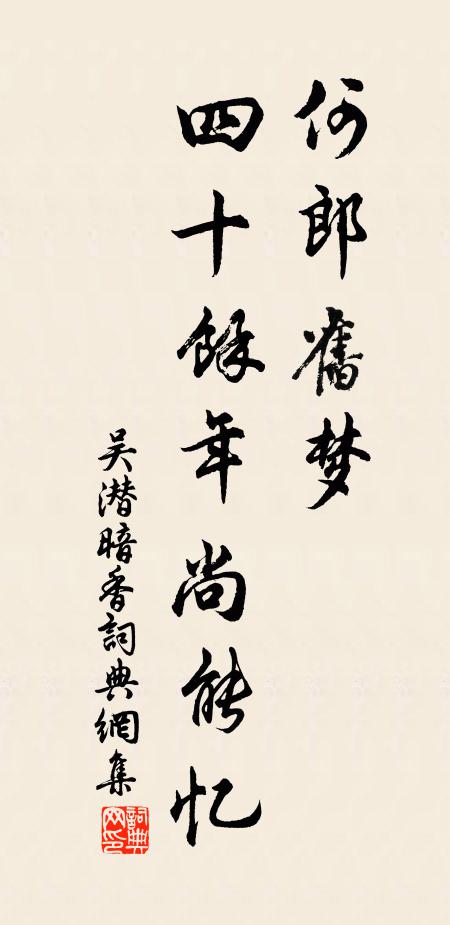 何郎舊梦
四十餘年尚能忆
吴潜暗香詞典網集
詞典網印